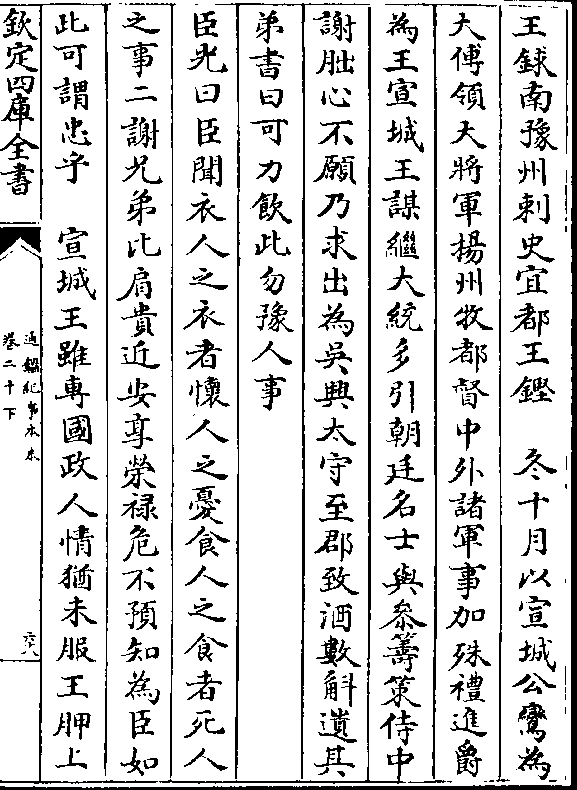 王銶南豫州刺史宜都王鏗　冬十月以宣城公鸞為
大傅領大將軍揚州牧都督中外諸軍事加殊禮進爵
為王宣城王謀繼大統多引朝廷名士與叅籌策侍中
謝朏心不願乃求出為吳興太守至郡致酒數斛遺其
弟書曰可力飲此勿豫人事
臣光曰臣聞衣人之衣者懷人之憂食人之食者死人
之事二謝兄弟比肩貴近安享榮禄危不預知為臣如
此可謂忠乎　宣城王雖專國政人情猶未服王胛上
欽定四庫全書
通鑑紀事本末
卷二十下
六八